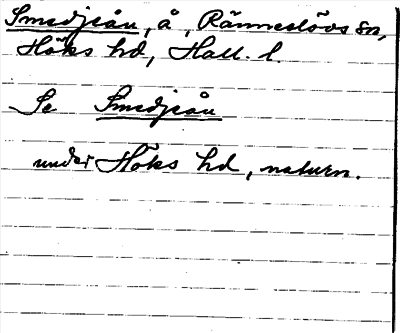 Smedjeån, å, Ränneslövs sn,
Höks hd, Hall. l.
Se Smedjeån
under Höks hd, naturn.